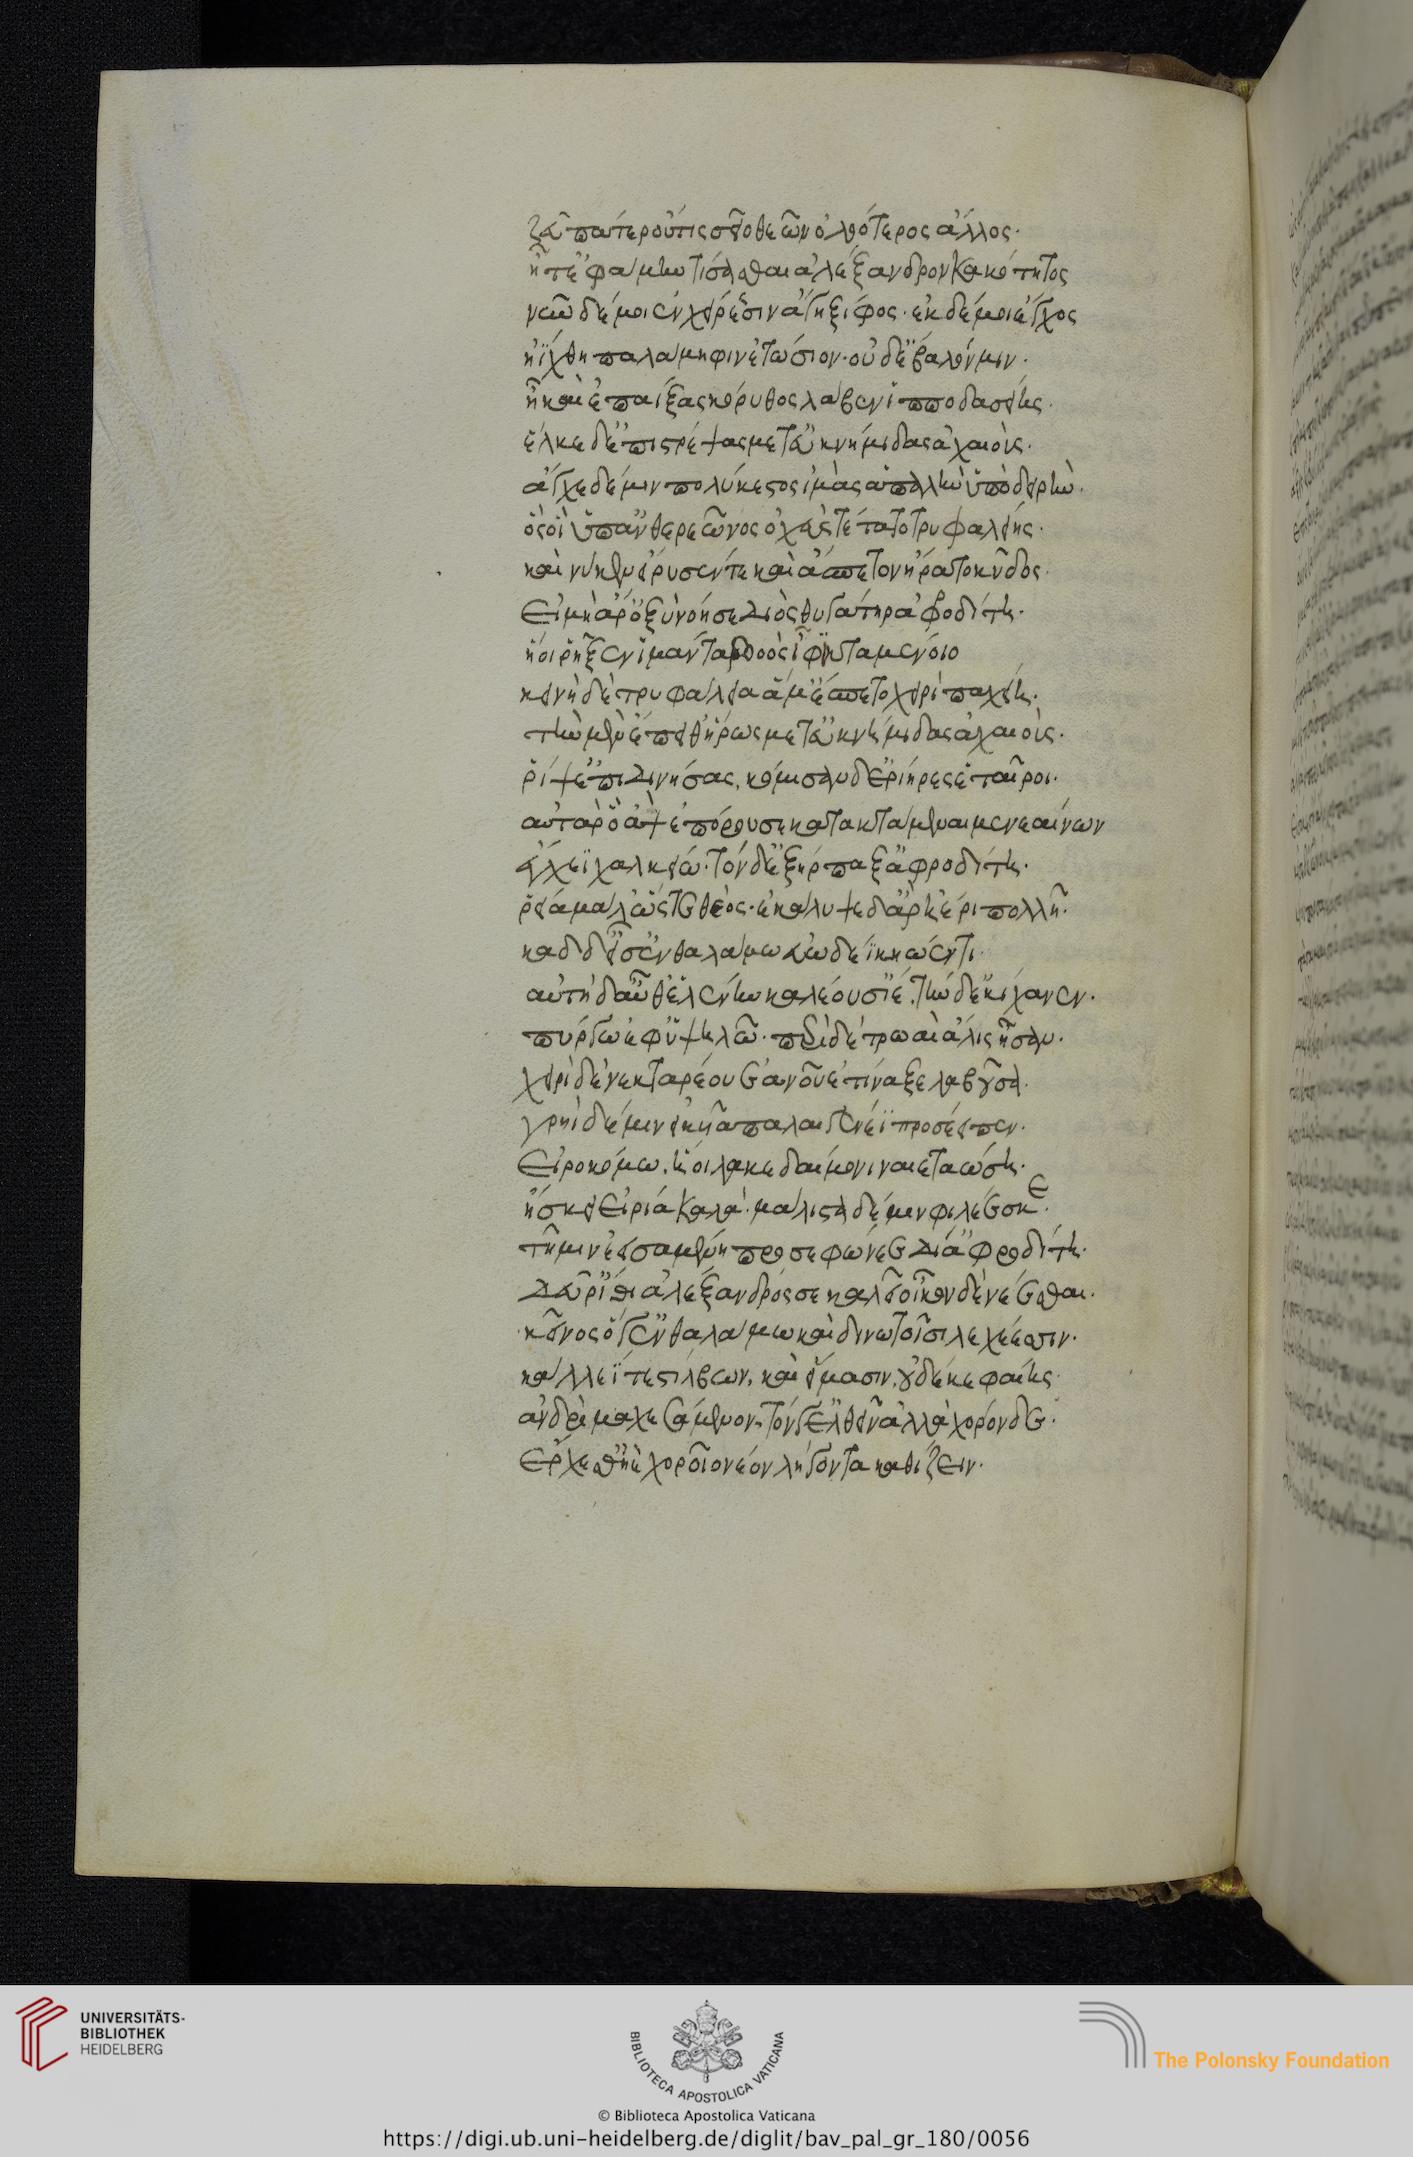 ζεῦ πάτερ οὔτις σεῖο θεῶν ὀλοώτερος ἄλλος·
ἦ τ' ἐφάμην τίσασθαι ἀλέξανδρον κακότητος
νῦν δέ μοι ἐν χείρεσσιν ἄγη ξίφος· ἐκ δέ μοι ἔγχος
ἠΐχθη παλάμηφιν ἐτώσιον· οὐδ' ἔβαλόν μιν·
ἦ καὶ ἐπαΐξας κόρυθος λάβεν ἱπποδασείης·
ἕλκε δ' ἐπιστρέψας μετ' ἐϋκνήμιδας ἀχαιοὺς·
ἄγχε δέ μιν πολύκεστος ἱμὰς ἁπαλὴν ὑπὸ δειρὴν·
ὅς οἱ ὑπ' ἀνθερεῶνος ὀχεὺς τέτατο τρυφαλείης·
καί νύ κεν εἴρυσέν τε καὶ ἄσπετον ἤρατο κῦδος·
εἰ μὴ ἄρ' ὀξὺ νόησε διὸς θυγάτηρ ἀφροδίτη·
ἥ οἱ ῥῆξεν ἱμάντα βοὸς ἶφι κταμένοιο
κεινὴ δὲ τρυφάλεια ἅμ' ἕσπετο χειρὶ παχείη·
τὴν μὲν ἔπειθ' ἥρως μετ' ἐϋκνήμιδας ἀχαιοὺς·
ῥίψ' ἐπιδινήσας, κόμισαν δ' ἐρίηρες ἑταῖροι·
αὐτὰρ ὃ ἂψ ἐπόρουσε κατακτάμεναι μενεαίνων
ἔγχεϊ χαλκείῳ· τὸν δ' ἐξήρπαξ' ἀφροδίτη·
ῥεῖα μάλ' ὥς τε θεός· ἐκάλυψε δ' ἄρ' ἠέρι πολλῇ·
κὰδ δ' εἷσ' ἐν θαλάμω εὐώδεϊ κηώεντι·
αὐτὴ δ' αὖθ' ἑλένην καλέουσ' ἴε, τὴν δ' ἐκίχανεν·
πύργω ἐφ' ὑψηλῶ· περὶ δὲ τρωαὶ ἅλις ἦσαν·
χειρὶ δὲ νεκταρέου ἑανοῦ ἐτίναξε λαβοῦσα·
γρηῒ δέ μιν εἰκυῖα παλαιγενέϊ προσέειπεν·
εἰροκόμω, ἥ οἱ λακεδαίμονι ναιεταώση·
ἤσκειν εἴρια καλά· μάλιστα δέ μιν φιλέεσκε·
τῆ μιν ἐεισαμένη προσεφώνεε δῖ' ἀφροδίτη·
δεῦρ' ἴθι ἀλέξανδρός σε καλεῖ οἶκον δὲ νέεσθαι·
κεῖνος ὅγ' ἐν θαλάμω καὶ δινωτοῖσι λεχέεσσιν·
κάλλεΐ τε στίλβων, καὶ εἵμασιν, οὐδέ κε φαίης·
ἀνδρὶ μαχεσάμενον, τόνγ' ἐλθεῖν ἀλλὰ χορόνδε·
ἔρχεσθ' ἠὲ χοροῖο νέον λήγοντα καθίζειν·
UNIVERSITÄTS-
BIBLIOTHEK
HEIDELBERG
BIBLIOTECA APOSTOLICA VATICANA
The Polonsky Foundation
© Biblioteca Apostolica Vaticana
https://digi.ub.uni-heidelberg.de/diglit/bav_pal_gr_180/0056